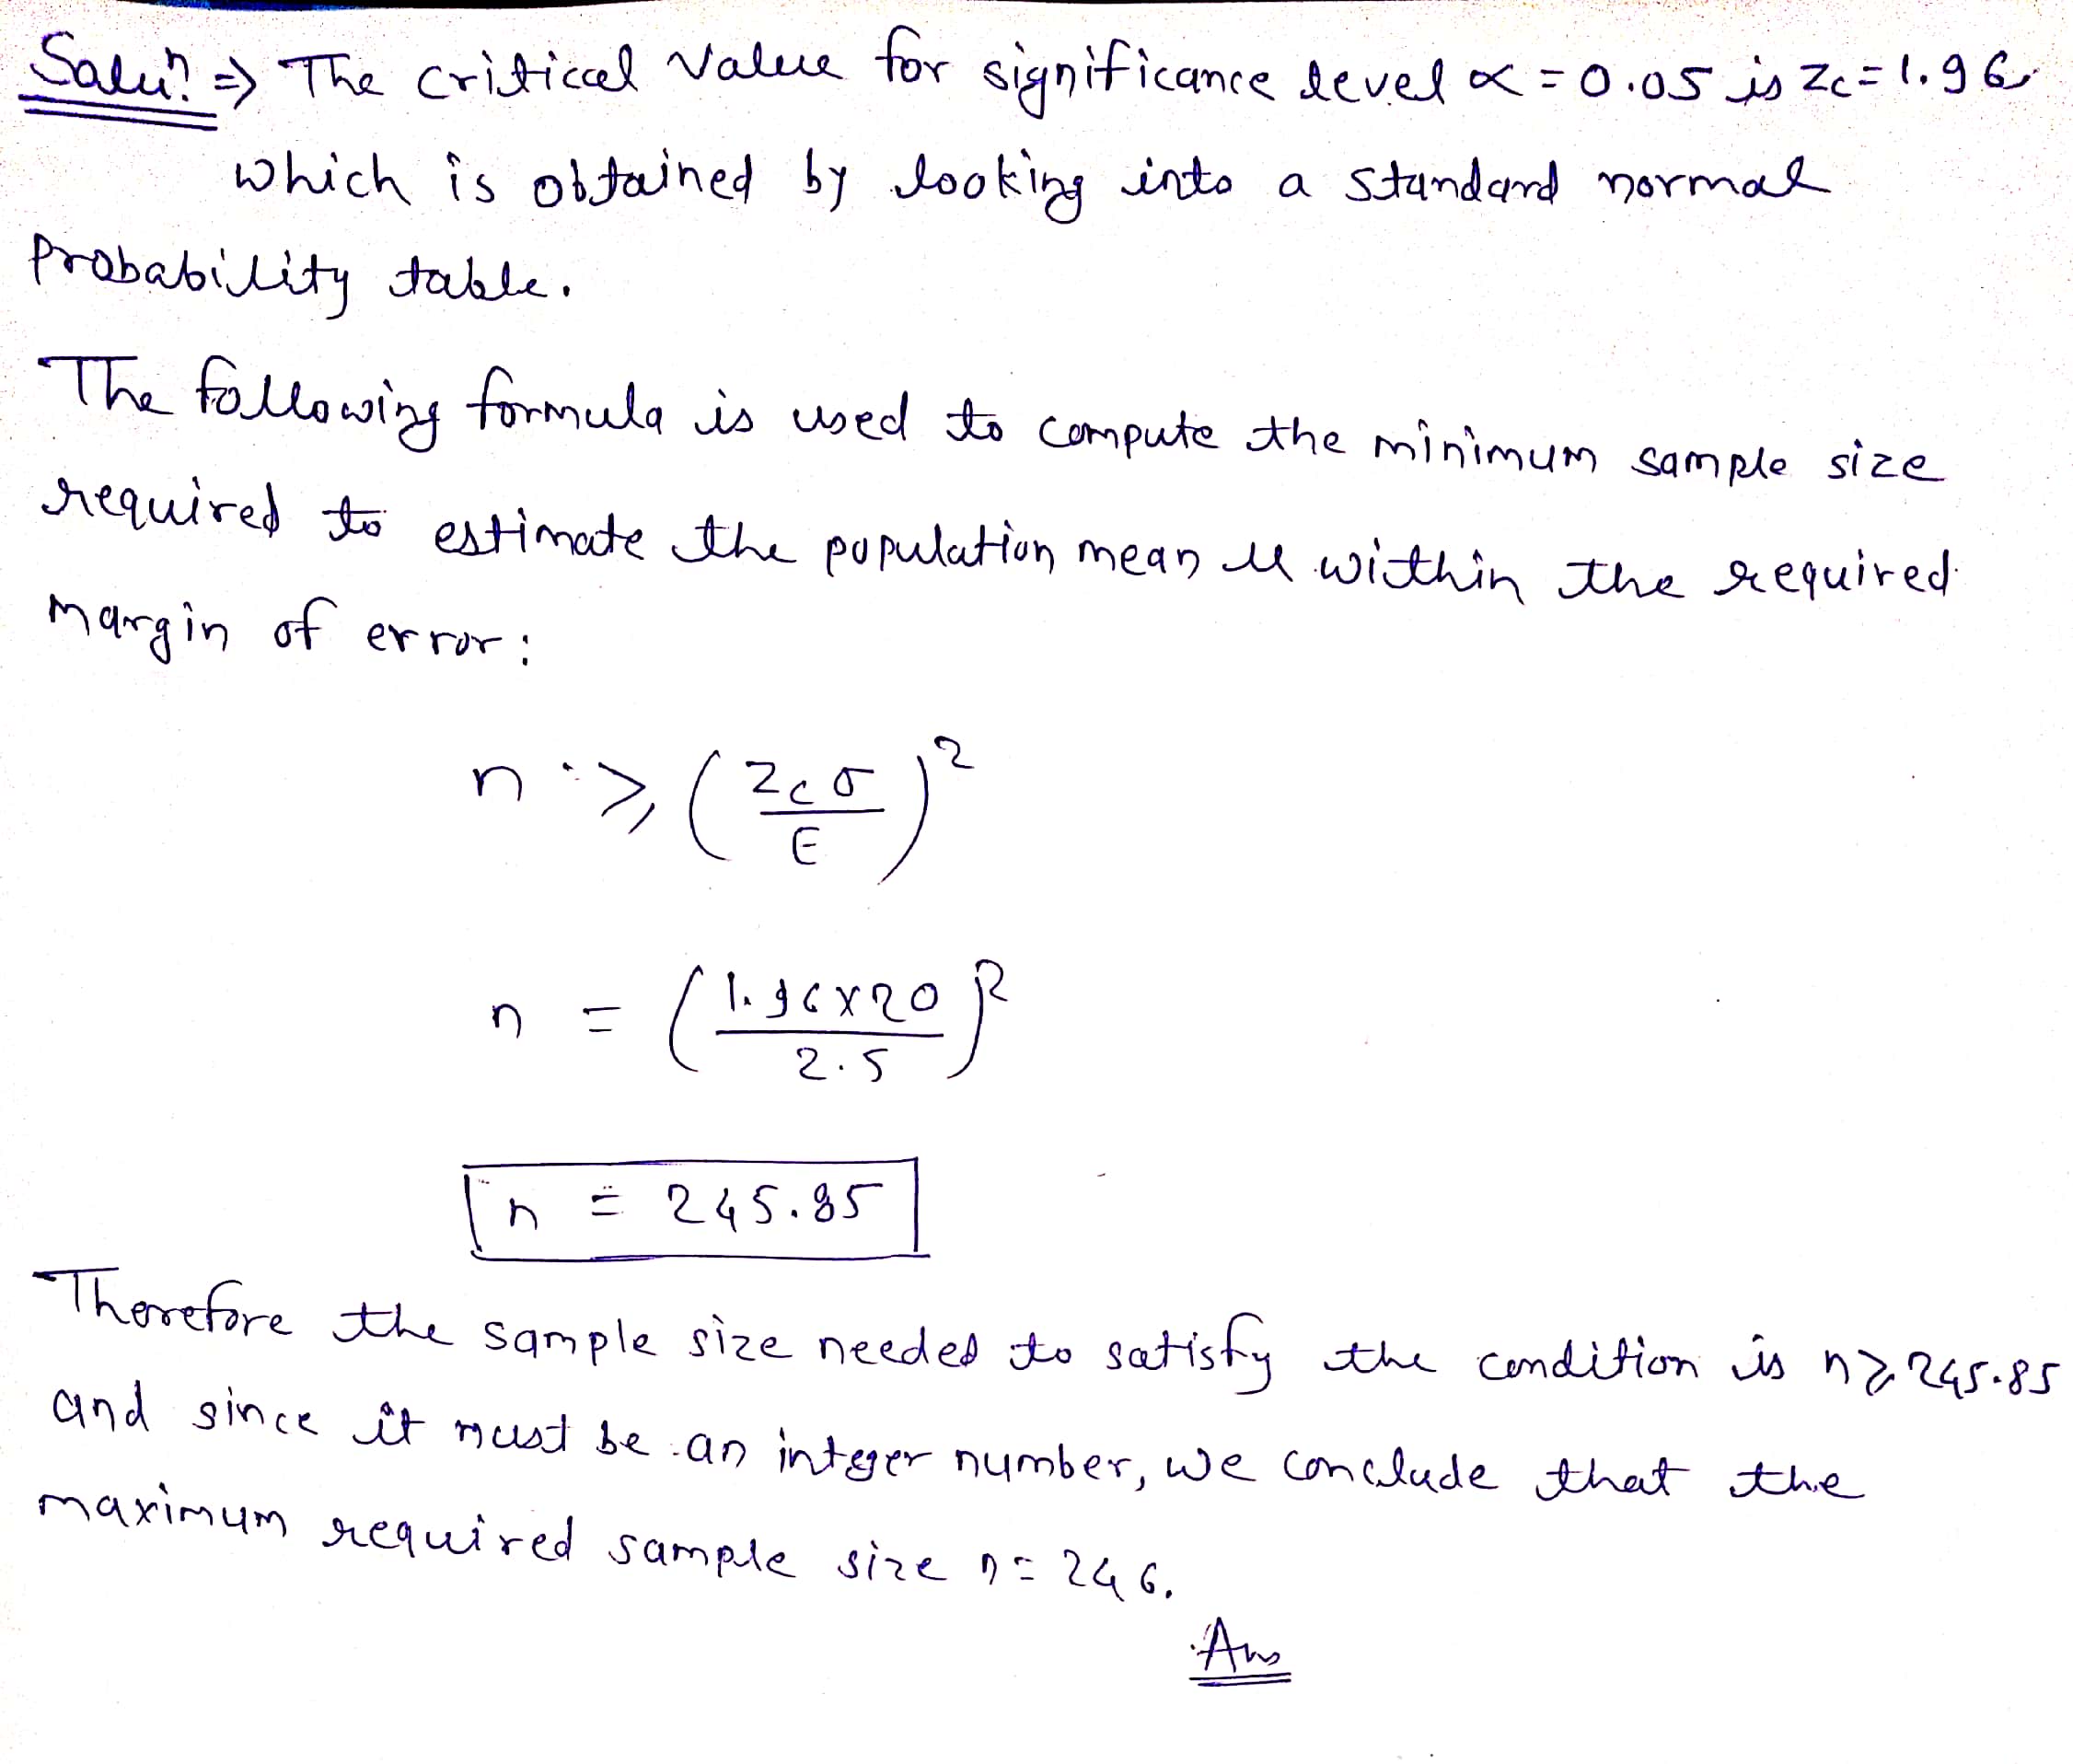 Solun ⇒ The critical value for significance level α = 0.05 is Zc = 1.96
which is obtained by looking into a standard normal
Probability table.
The following formula is used to compute the minimum sample size
required to estimate the population mean μ within the required
margin of error:
n ≥ (Zcσ / E)²
n = (1.96×20 / 2.5)²
n = 245.85
Therefore the sample size needed to satisfy the condition is n ≥ 245.85
and since it must be an integer number, we conclude that the
maximum required sample size n = 246.
Ans